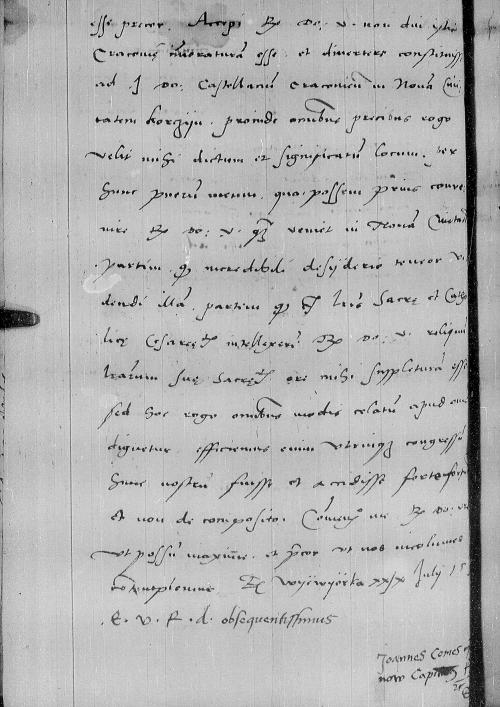 esse precor. Accepi R. Do: v. non diu istic
Cracoviȩ moraturam esse, et divertere constituisse
ad J. Do: Castellanum Cracovien in Novam Civi
tatem Korczijn. proinde omnibus precibus rogo
velit mihi dictum et significatum locum, per
hunc puerum meum, quo possem prius conve
nire R. Do: v. quam veniet in Novam Civitatem
partim quod incredibili desyderio teneor vi
dendi illam, partim quod ex lris Sacrȩ et Catho
licȩ Cesareȩ intellexerim R. Do: v. reliquum
lrarum suȩ Sacrȩ ore mihi suppleturam esse
sed hoc rogo omnibus modis celatum apud omnes
dignetur. efficiemus enim utriusque congressum
hunc nostrum fuisse et accidisse forte fortuna
et non de composito. Comendo me R. Do: v.
ut possum maxime. et precor ut nos incolumes
Ex xxix July 15
E. v. R. d. obsequentissimus
Joannes Comes